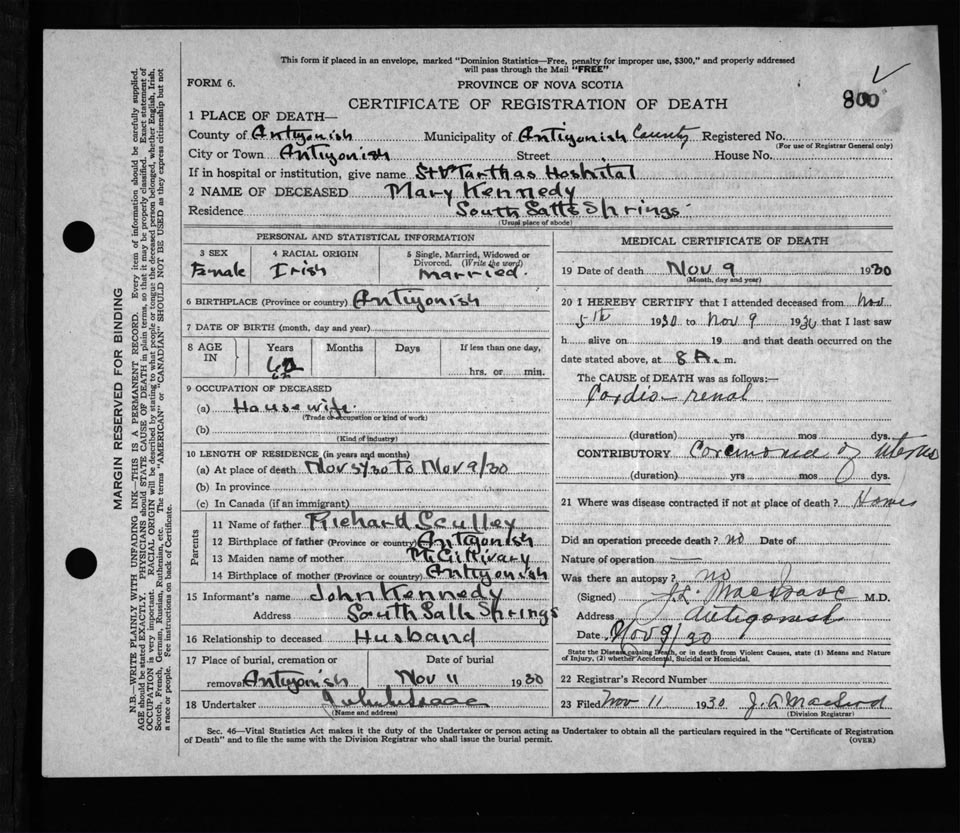 This form if placed in an envelope, marked "Dominion Statistics—Free, penalty for improper use, $300," and properly addressed
will pass through the Mail "FREE"
FORM 6.
PROVINCE OF NOVA SCOTIA
800
CERTIFICATE OF REGISTRATION OF DEATH
1 PLACE OF DEATH—
County of Antigonish Municipality of Antigonish County Registered No.
(For use of Registrar General only)
City or Town Antigonish Street House No.
If in hospital or institution, give name St Marthas Hospital
2 NAME OF DECEASED Mary Kennedy
Residence South Salt Springs
(Usual place of abode)
PERSONAL AND STATISTICAL INFORMATION
3 SEX 4 RACIAL ORIGIN 5 Single, Married, Widowed or
Divorced. (Write the word)
Female Irish married.
6 BIRTHPLACE (Province or country) Antigonish
7 DATE OF BIRTH (month, day and year)
8 AGE IN Years Months Days If less than one day,
62 hrs. or min.
9 OCCUPATION OF DECEASED
(a) House wife.
(Trade or occupation or kind of work)
(b)
(Kind of industry)
10 LENGTH OF RESIDENCE (in years and months)
(a) At place of death Nov 5/30 To Nov 9/30
(b) In province
(c) In Canada (if an immigrant)
Parents
11 Name of father Richard Sculley
12 Birthplace of father (Province or country) Antigonish
13 Maiden name of mother McGillivary
14 Birthplace of mother (Province or country) Antigonish
15 Informant's name John Kennedy
Address South Salt Springs
16 Relationship to deceased Husband
17 Place of burial, cremation or Date of burial
removal Antigonish Nov 11 1930
18 Undertaker
(Name and address)
MEDICAL CERTIFICATE OF DEATH
19 Date of death Nov 9 1930
(Month, day and year)
20 I HEREBY CERTIFY that I attended deceased from Nov
5th 1930 to Nov 9 1930 that I last saw
h alive on 19 and that death occurred on the
date stated above, at 8 A. m.
The CAUSE OF DEATH was as follows:—
Cardio-renal
(duration) yrs mos dys.
CONTRIBUTORY Carcinoma of uterus
(duration) yrs mos dys.
21 Where was disease contracted if not at place of death? Home
Did an operation precede death? no Date of
Nature of operation —
Was there an autopsy? no
(Signed) J. L. MacIsaac M.D.
Address Antigonish
Date Nov 9/30
State the Disease causing Death, or in death from Violent Causes, state (1) Means and Nature
of Injury, (2) whether Accidental, Suicidal or Homicidal.
22 Registrar's Record Number
23 Filed Nov 11 1930 J. A. MacLeod
(Division Registrar)
Sec. 46—Vital Statistics Act makes it the duty of the Undertaker or person acting as Undertaker to obtain all the particulars required in the "Certificate of Registration
of Death" and to file the same with the Division Registrar who shall issue the burial permit.
(OVER)
MARGIN RESERVED FOR BINDING
N.B.—WRITE PLAINLY WITH UNFADING INK—THIS IS A PERMANENT RECORD. Every item of information should be carefully supplied.
AGE should be stated EXACTLY. PHYSICIANS should STATE CAUSE OF DEATH in plain terms, so that it may be properly classified. Exact statement of
OCCUPATION is very important. RACIAL ORIGIN will be described by stating to what people or tongue the deceased person belonged, whether English, Irish,
Scotch, French, German, Russian, Ruthenian, etc. The terms "AMERICAN" or "CANADIAN" SHOULD NOT BE USED as they express citizenship but not
a race or people. See instructions on back of Certificate.